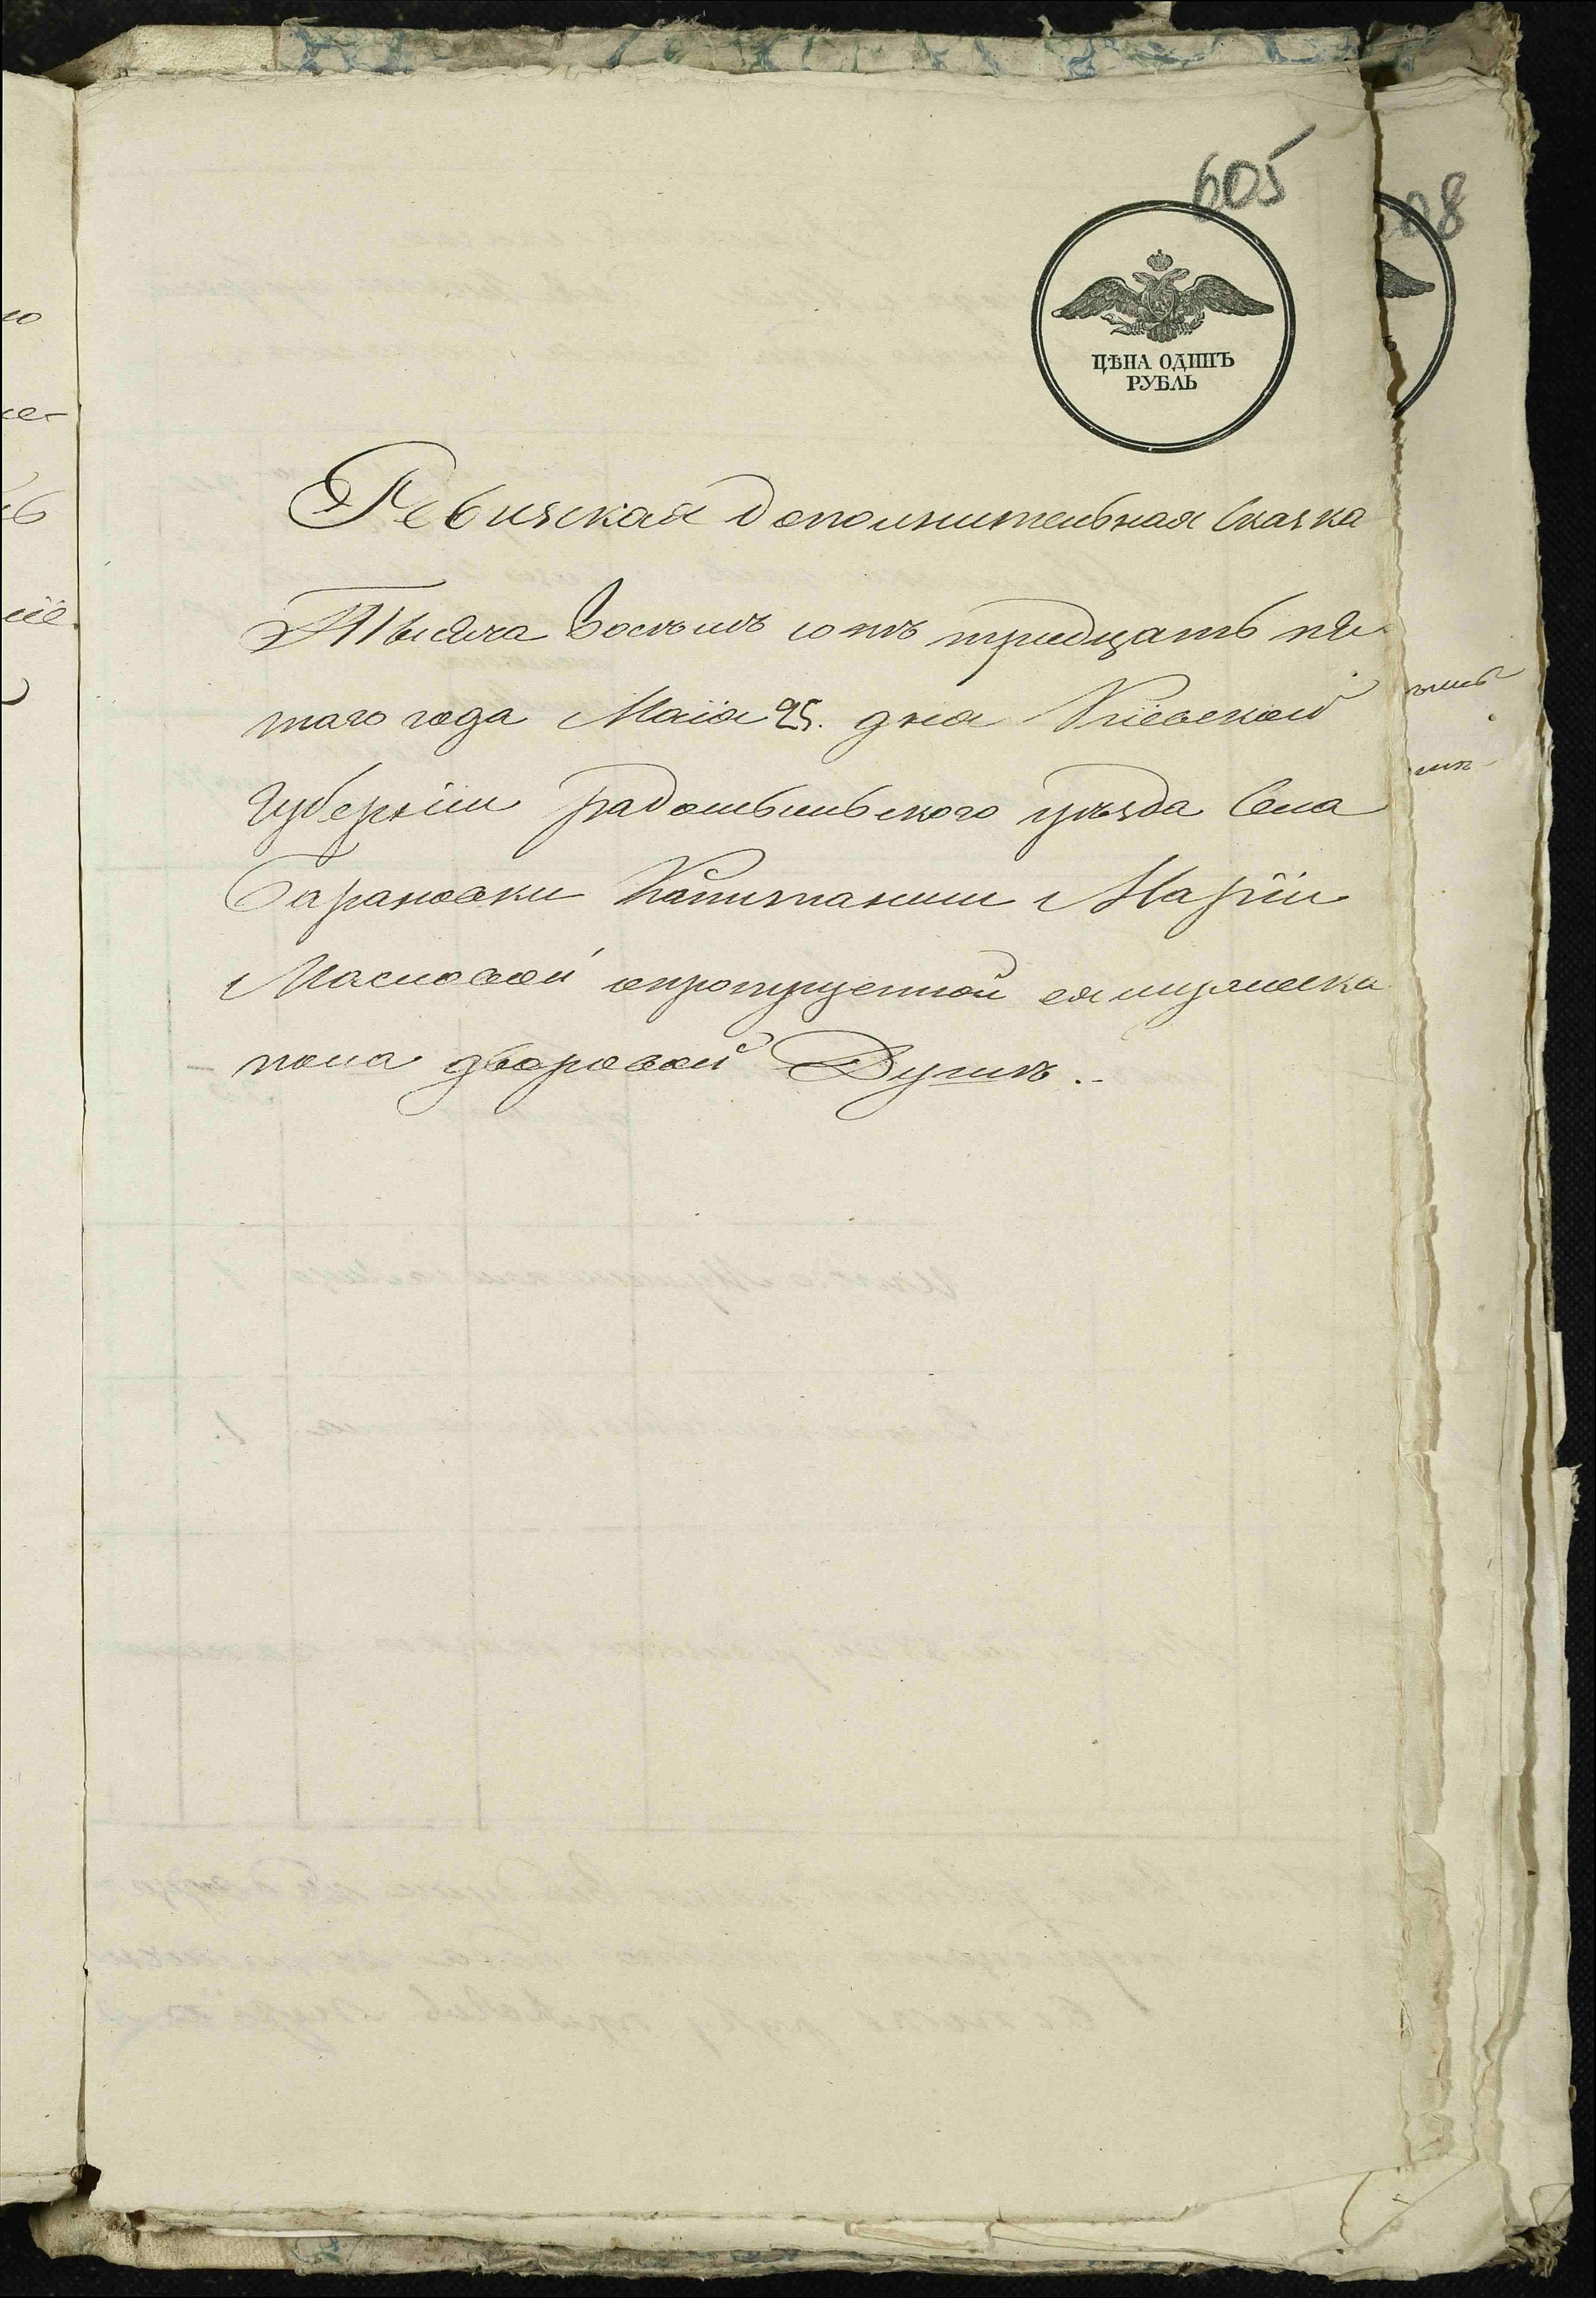 605
08
ЦѢНА ОДИНЪ
РУБЛЬ
Ревизская дополнительная Сказка
Тысяча восѣмъ сотъ тридцать пя-
таго года Маія 25. дня Кіевской
Губерніи радомысльского уѣзда Села
Барановки Капитанши Маріи
Масловой опропущенной ея мужеска
пола дворовой Душѣ..